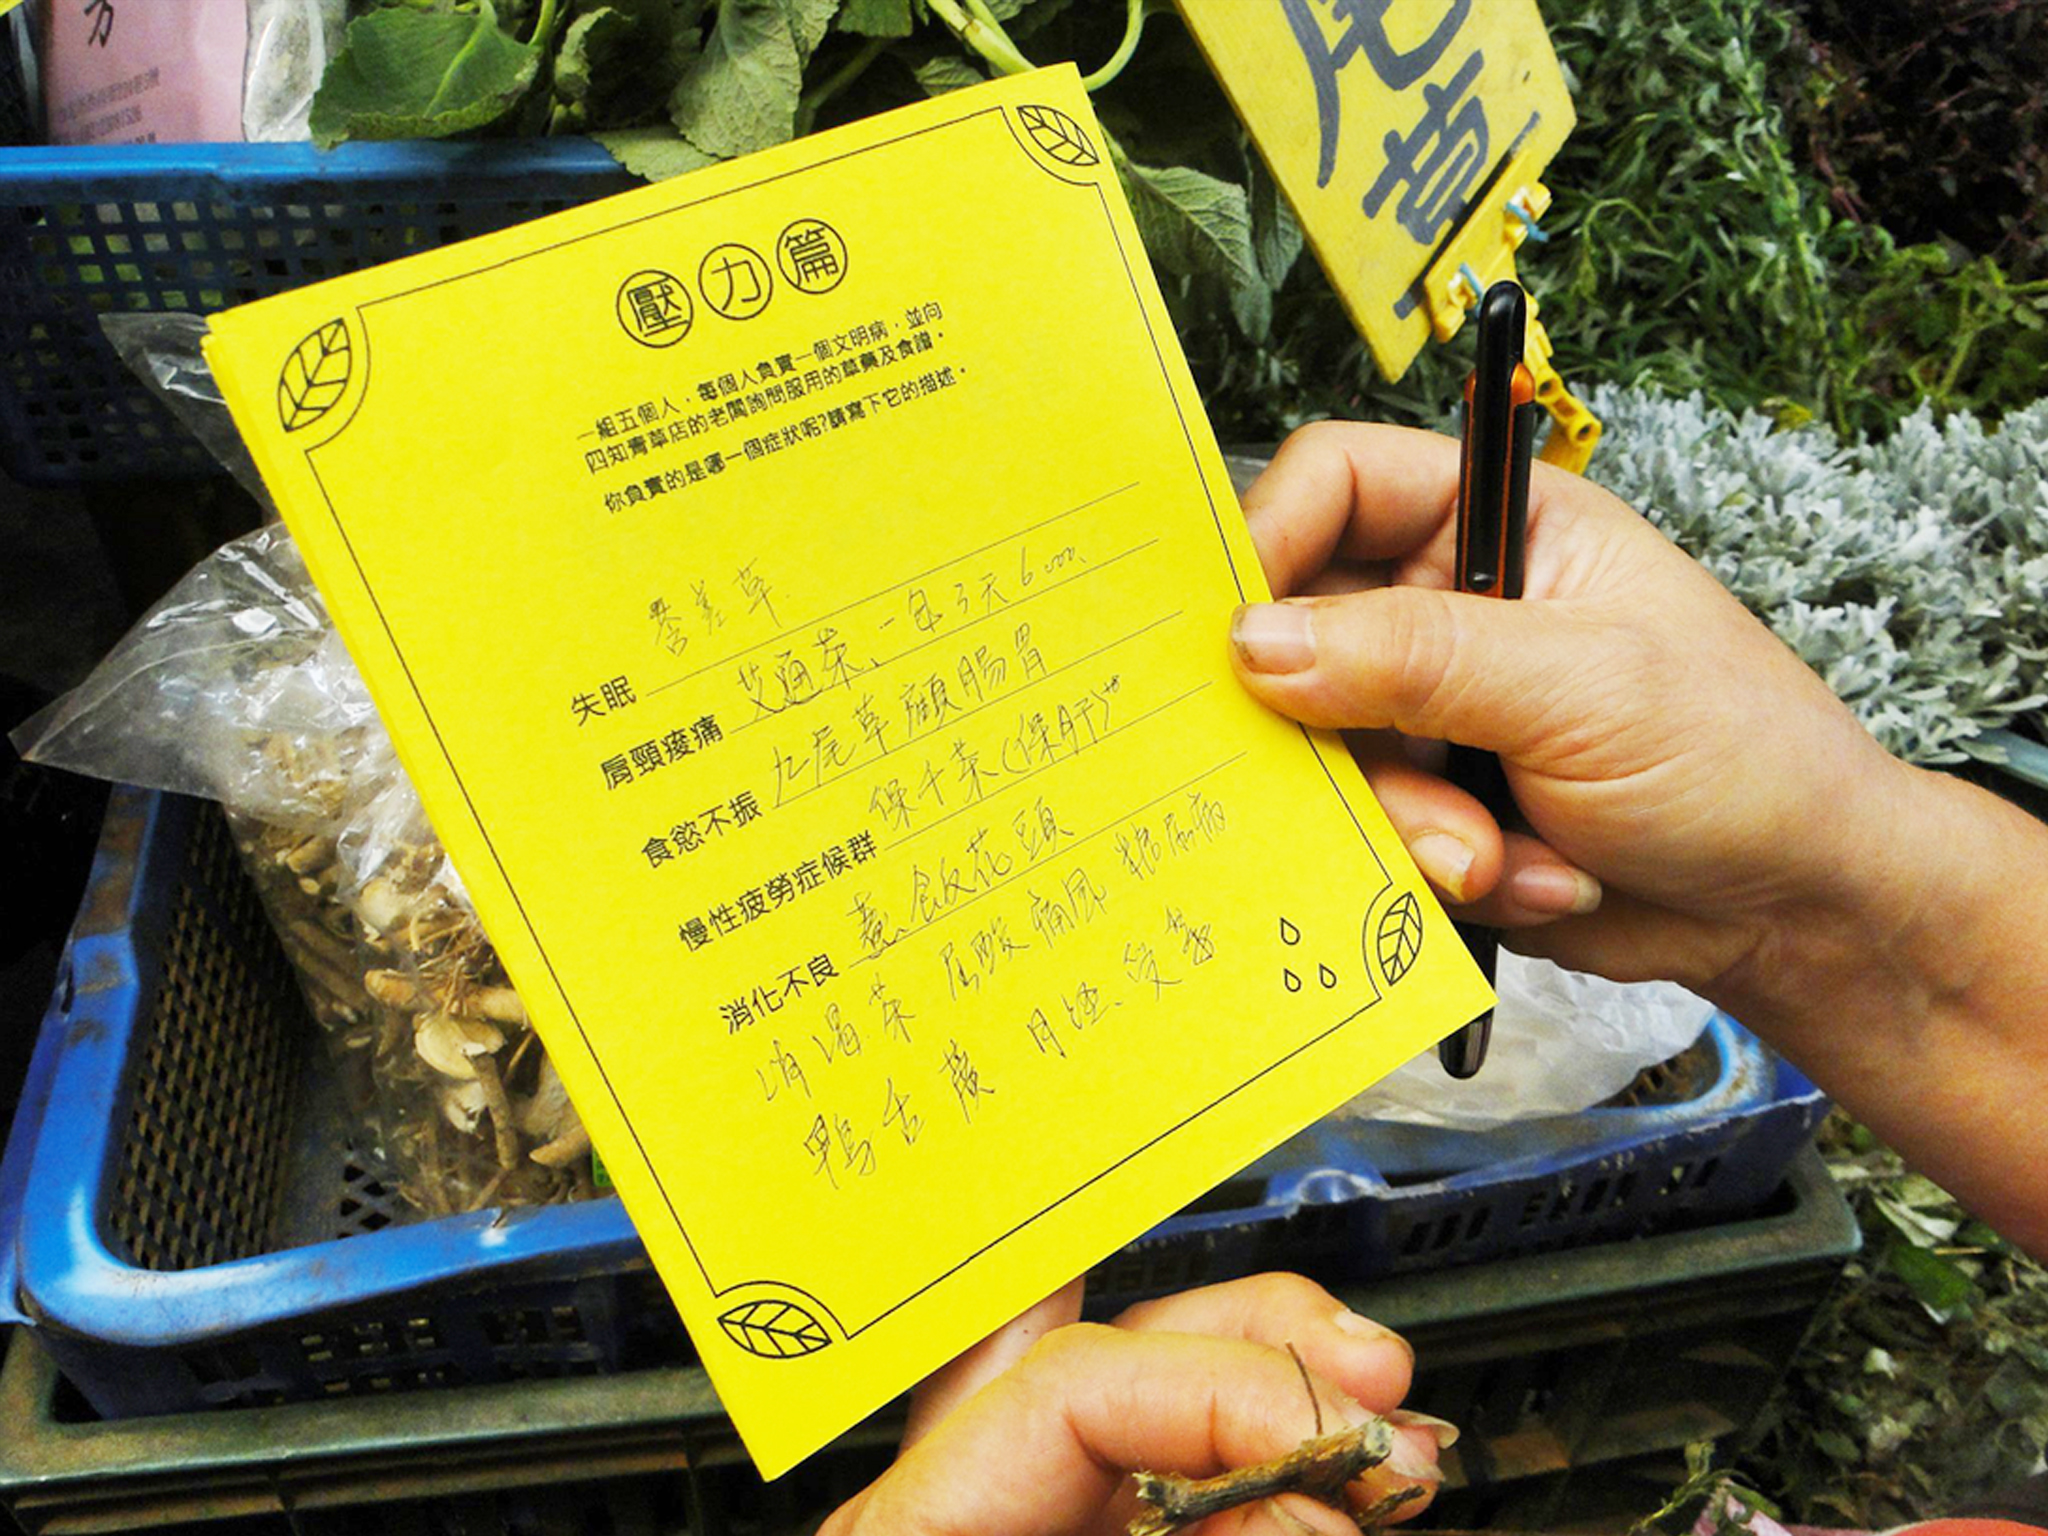 方
尾草
壓力篇
一組五個人，每個人負責一個文明病，並向
四知青草店的老闆詢問服用的草藥及食譜。
你負責的是哪一個症狀呢?請寫下它的描述。
失眠 香差草
肩頸痠痛 艾通茶、一包3天600
食慾不振 九尾草顧腸胃
慢性疲勞症候群 保干茶(保肝)
消化不良 煮飯花頭
消渴茶 尿酸 痛風 糖尿病
鴨舌癀 月經、受孕